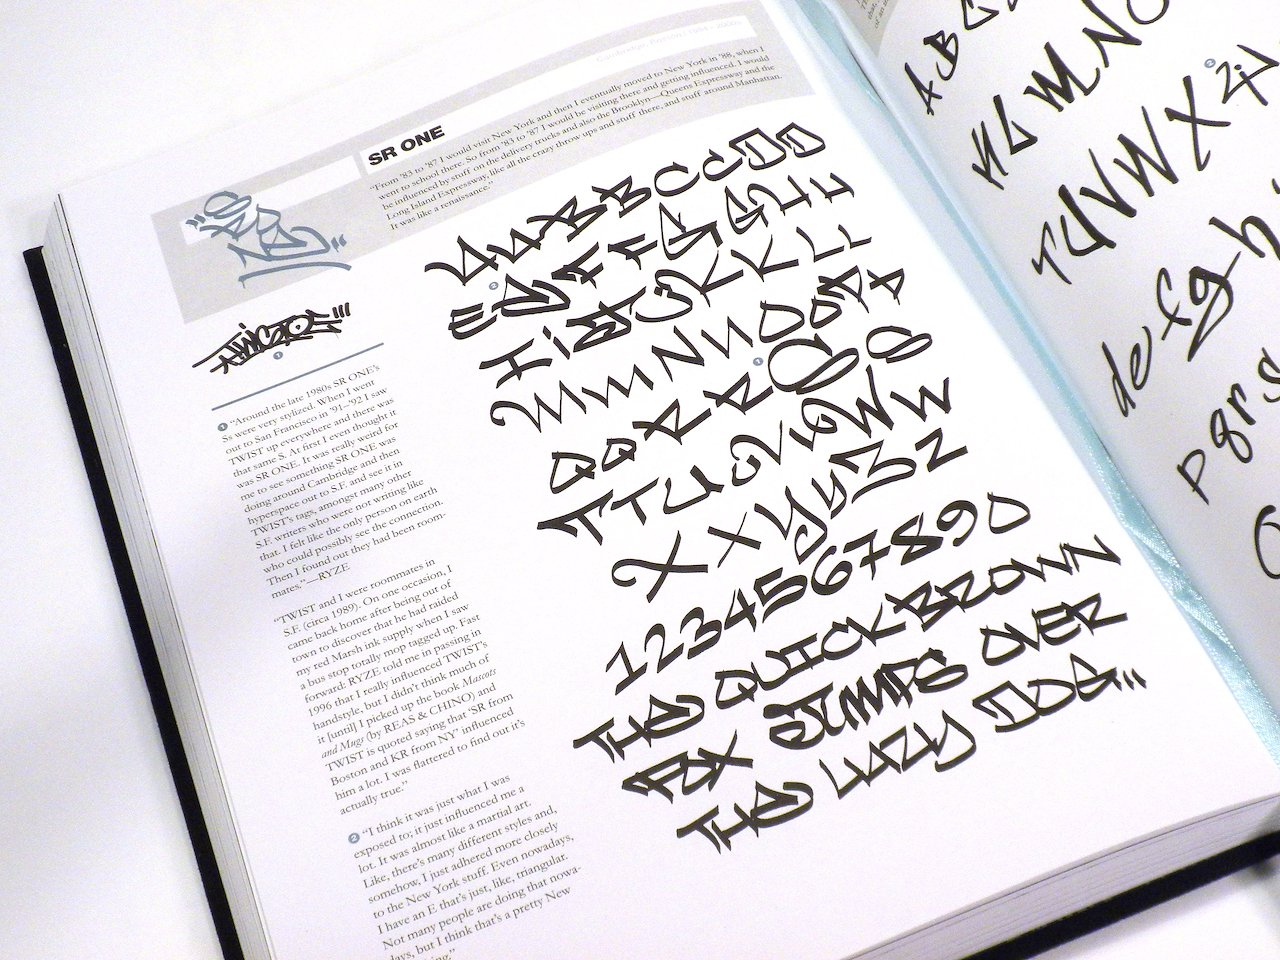 SR ONE
"From '83 to '87 I would visit New York and then I eventually moved to New York in '88, when I
went to school there. So from '83 to '87 I would be visiting there and getting influenced. I would
be influenced by stuff on the delivery trucks and also the Brooklyn—Queens Expressway and the
Long Island Expressway, like all the crazy throw ups and stuff there, and stuff around Manhattan.
It was like a renaissance."
1
1 "Around the late 1980s SR ONE's
Ss were very stylized. When I went
out to San Francisco in '91–'92 I saw
TWIST up everywhere and there was
that same S. At first I even thought it
was SR ONE. It was really weird for
me to see something SR ONE was
doing around Cambridge and then
hyperspace out to S.F. and see it in
TWIST's tags, amongst many other
S.F. writers who were not writing like
that. I felt like the only person on earth
who could possibly see the connection.
Then I found out they had been room-
mates."—RYZE
"TWIST and I were roommates in
S.F. (circa 1989). On one occasion, I
came back home after being out of
town to discover that he had raided
my red Marsh ink supply when I saw
a bus stop totally mop tagged up. Fast
forward: RYZE told me in passing in
1996 that I really influenced TWIST's
handstyle, but I didn't think much of
it [until] I picked up the book Mascots
and Mugs (by REAS & CHINO) and
TWIST is quoted saying that 'SR from
Boston and KR from NY' influenced
him a lot. I was flattered to find out it's
actually true."
2 "I think it was just what I was
exposed to; it just influenced me a
lot. It was almost like a martial art.
Like, there's many different styles and,
somehow, I just adhered more closely
to the New York stuff. Even nowadays,
I have an E that's just, like, triangular.
Not many people are doing that nowa-
days, but I think that's a pretty New
A A B B C C D D
2 E E F F G G H H
I i J J K K L L
M M N N O O P P
Q Q R R 1 S S
T T U U V V W W
X X Y Y Z Z
1 2 3 4 5 6 7 8 9 0
THE QUICK BROWN
FOX JUMPS OVER
THE LAZY DOG
A B C
K L M N O
T U V W X 2 Z
d e f g h
p q r s